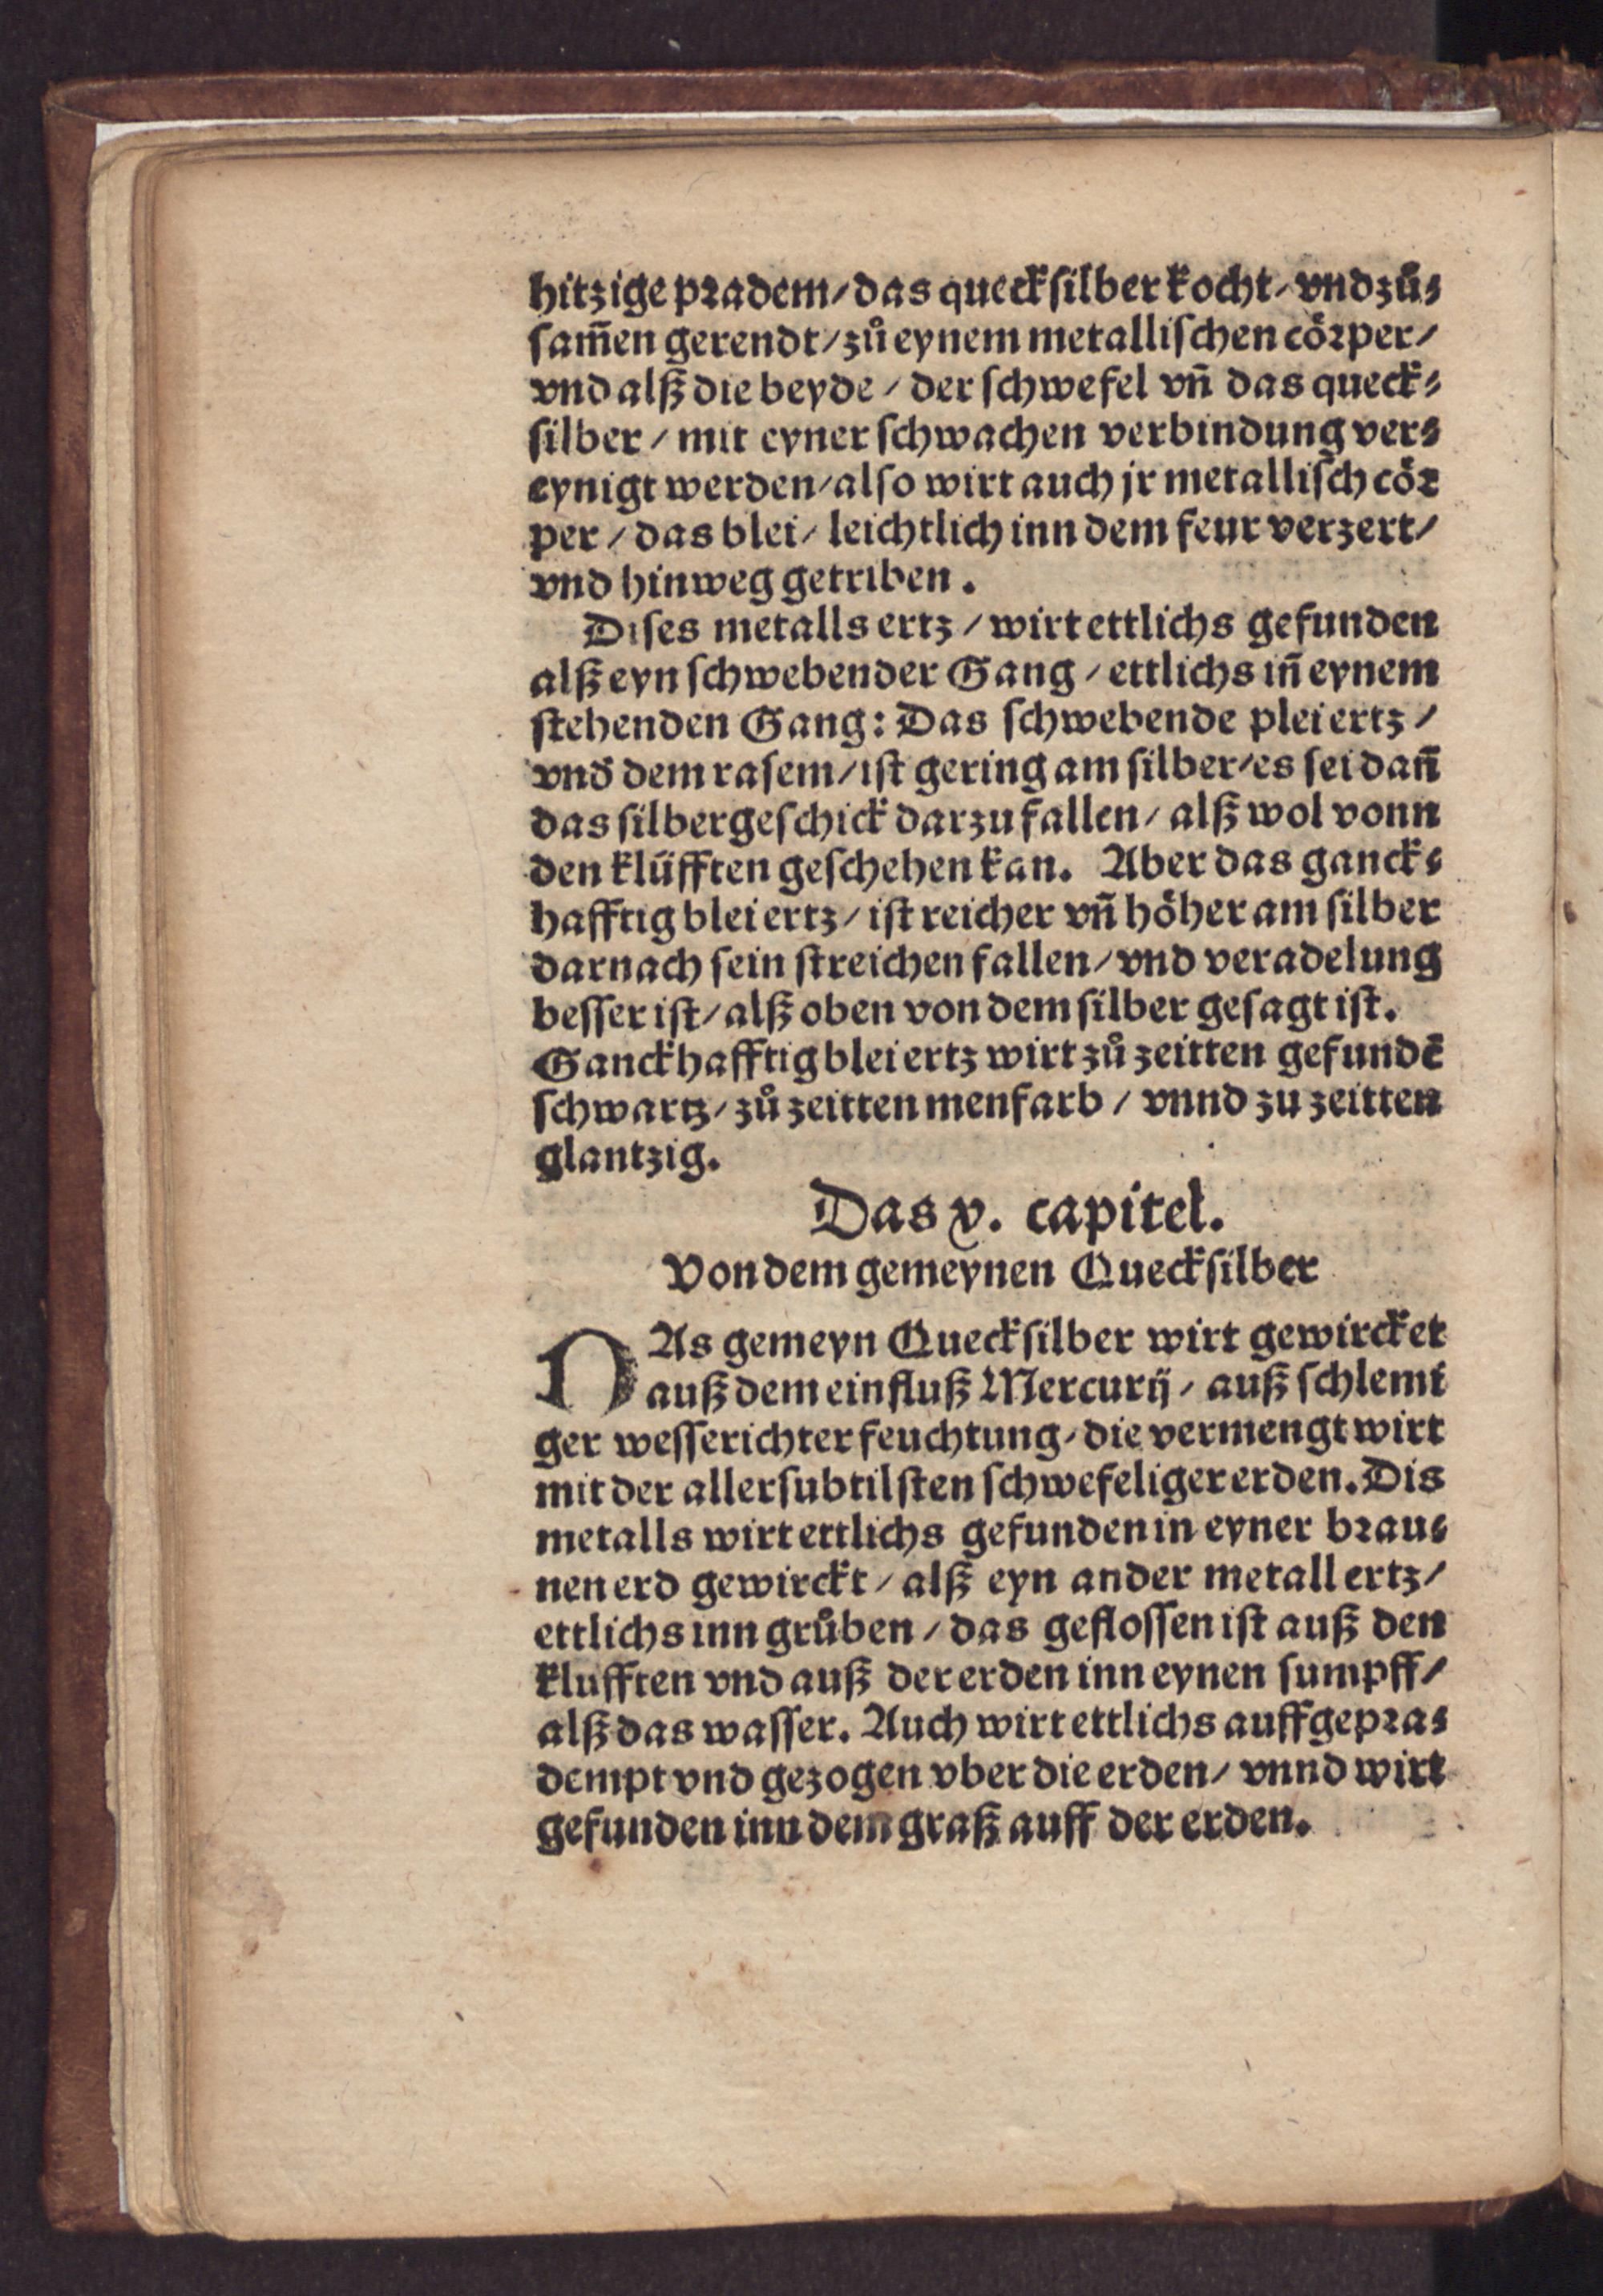 hitzige pradem / das queckſilber kocht / vnd zů⸗
ſam̄en gerendt / zů eynem metalliſchen cörper /
vnd alß die beyde / der ſchwefel vn̄ das queck⸗
ſilber / mit eyner ſchwachen verbindung ver⸗
eynigt werden / alſo wirt auch jr metalliſch cör
per / das blei / leichtlich inn dem feur verzert /
vnd hinweg getriben.
Diſes metalls ertz / wirt ettlichs gefunden
alß eyn ſchwebender Gang / ettlichs in̄ eynem
ſtehenden Gang: Das ſchwebende plei ertz /
vnd̕ dem raſem / iſt gering am ſilber / es ſei dan̄
das ſilbergeſchick darzu fallen / alß wol vonn
den klüfften geſchehen kan. Aber das ganck⸗
hafftig blei ertz / iſt reicher vn̄ höher am ſilber
darnach ſein ſtreichen fallen / vnd veradelung
beſſer iſt / alß oben von dem ſilber geſagt iſt.
Ganckhafftig blei ertz wirt zů zeitten gefundē
ſchwartz / zů zeitten menfarb / vnnd zu zeitten
glantzig.
Das v. capitel.
Von dem gemeynen Queckſilber
DAs gemeyn Queckſilber wirt gewircket
auß dem einfluß Mercurij / auß ſchlemi
ger weſſerichter feuchtung / die vermengt wirt
mit der allerſubtilſten ſchwefeliger erden. Dis
metalls wirt ettlichs gefunden in eyner brau⸗
nen erd gewirckt / alß eyn ander metall ertz /
ettlichs inn grůben / das gefloſſen iſt auß den
klufften vnd auß der erden inn eynen ſumpff /
alß das waſſer. Auch wirt ettlichs auffgepra⸗
dempt vnd gezogen vber die erden / vnnd wirt
gefunden inn dem graß auff der erden.